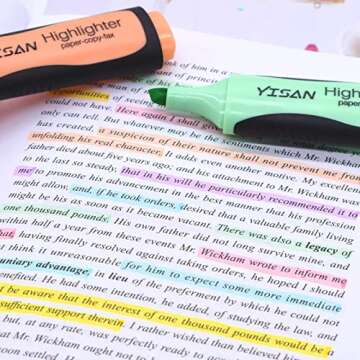 YISAN Highlighter
paper-copy-fax
YISAN High
paper
an of princi
of the
expectation of
could not have. Here again I shall
only can tell. But whatever may be the sentiments which Mr. Wickham
a suspicion of their nature shall not prevent me from
unfolding his real character. It adds even another motive. My excellent
father died about five years ago; and his attachment to Mr. Wickham
to the last so steady, that in his will he particularly recommended it to
me to promote his advancement in the best manner that his profession
might allow, and, if he took orders, desired that a valuable family living
might be his as soon as it became vacant. There was also a legacy of
one thousand pounds. His own father did not long survive mine, and
within half a year from these events Mr. Wickham wrote to inform me
that, having finally resolved against taking orders, he hoped I should
not think it unreasonable for him to expect some more immediate
pecuniary advantage, in lieu of the preferment, by which he could not
benefited. He had some intention, he added, of studying the law, and
must be aware that the interest of one thousand pounds would be a
sufficient support therein. I rather wished than believed
but, at any rate, was perfectly